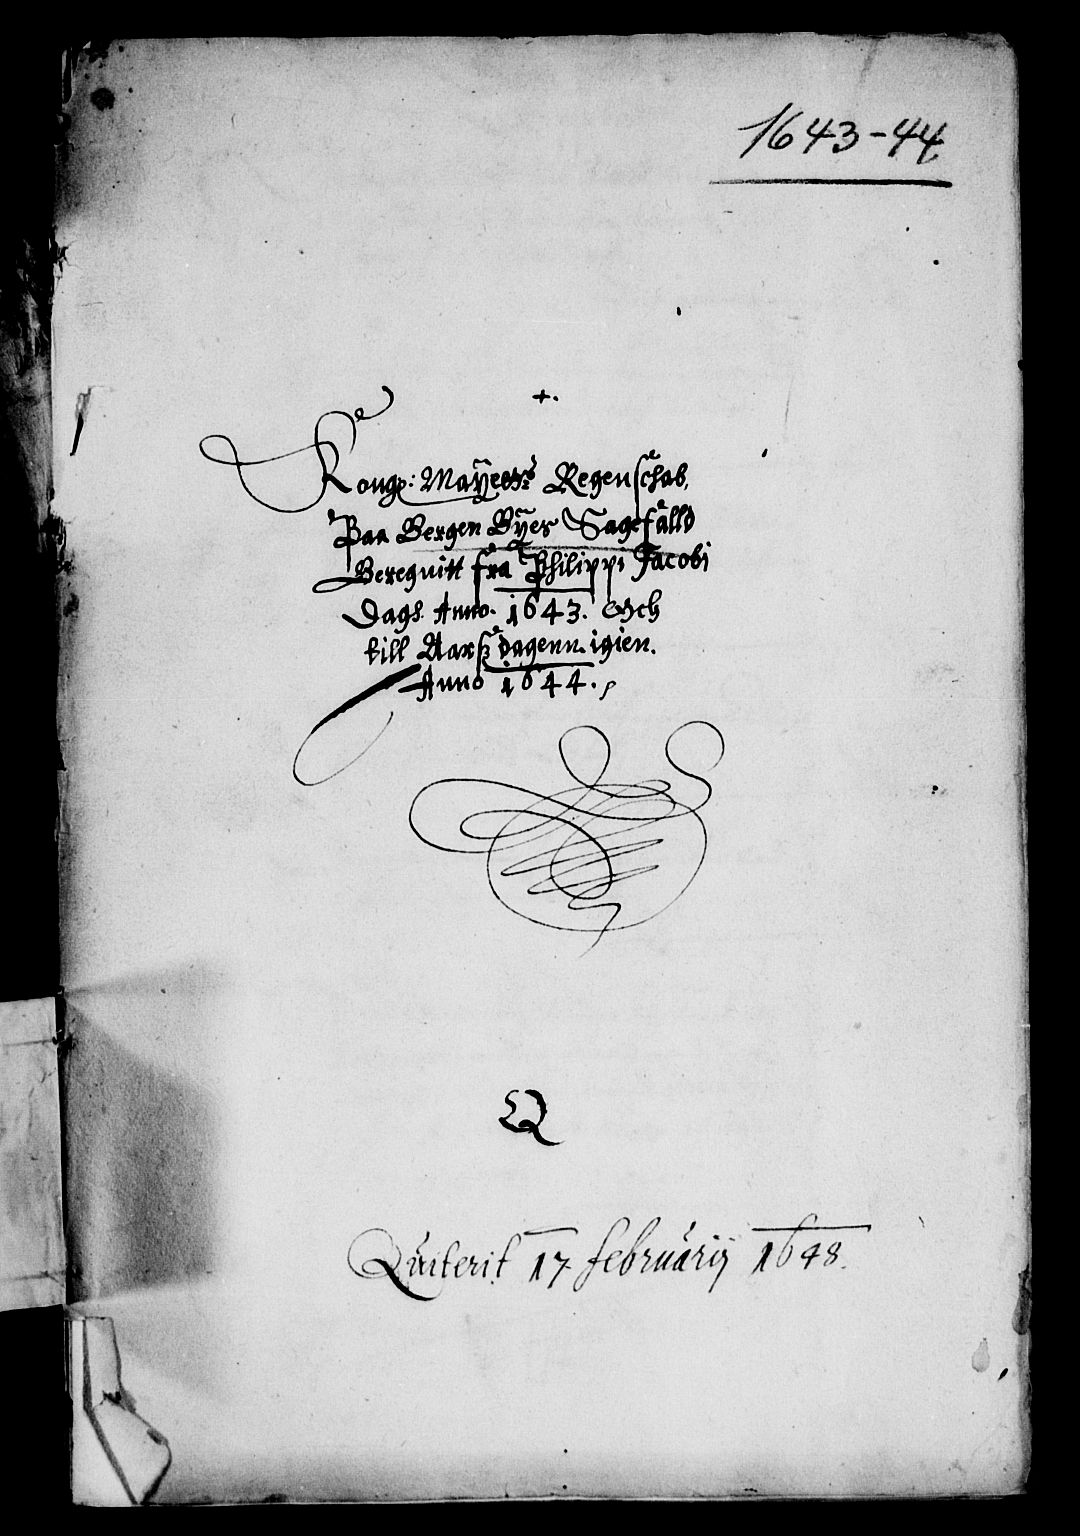 1643-44
+.
Kong: Mayetts Regenschab,
Paa Bergen Byes Sagefalld
Beregnitt fra Philippi Jacobi
Dags Anno. 1643. Och
till Aarß dagenn. igien.
Anno 1644.
Q
Quiterit 17 february 1648.